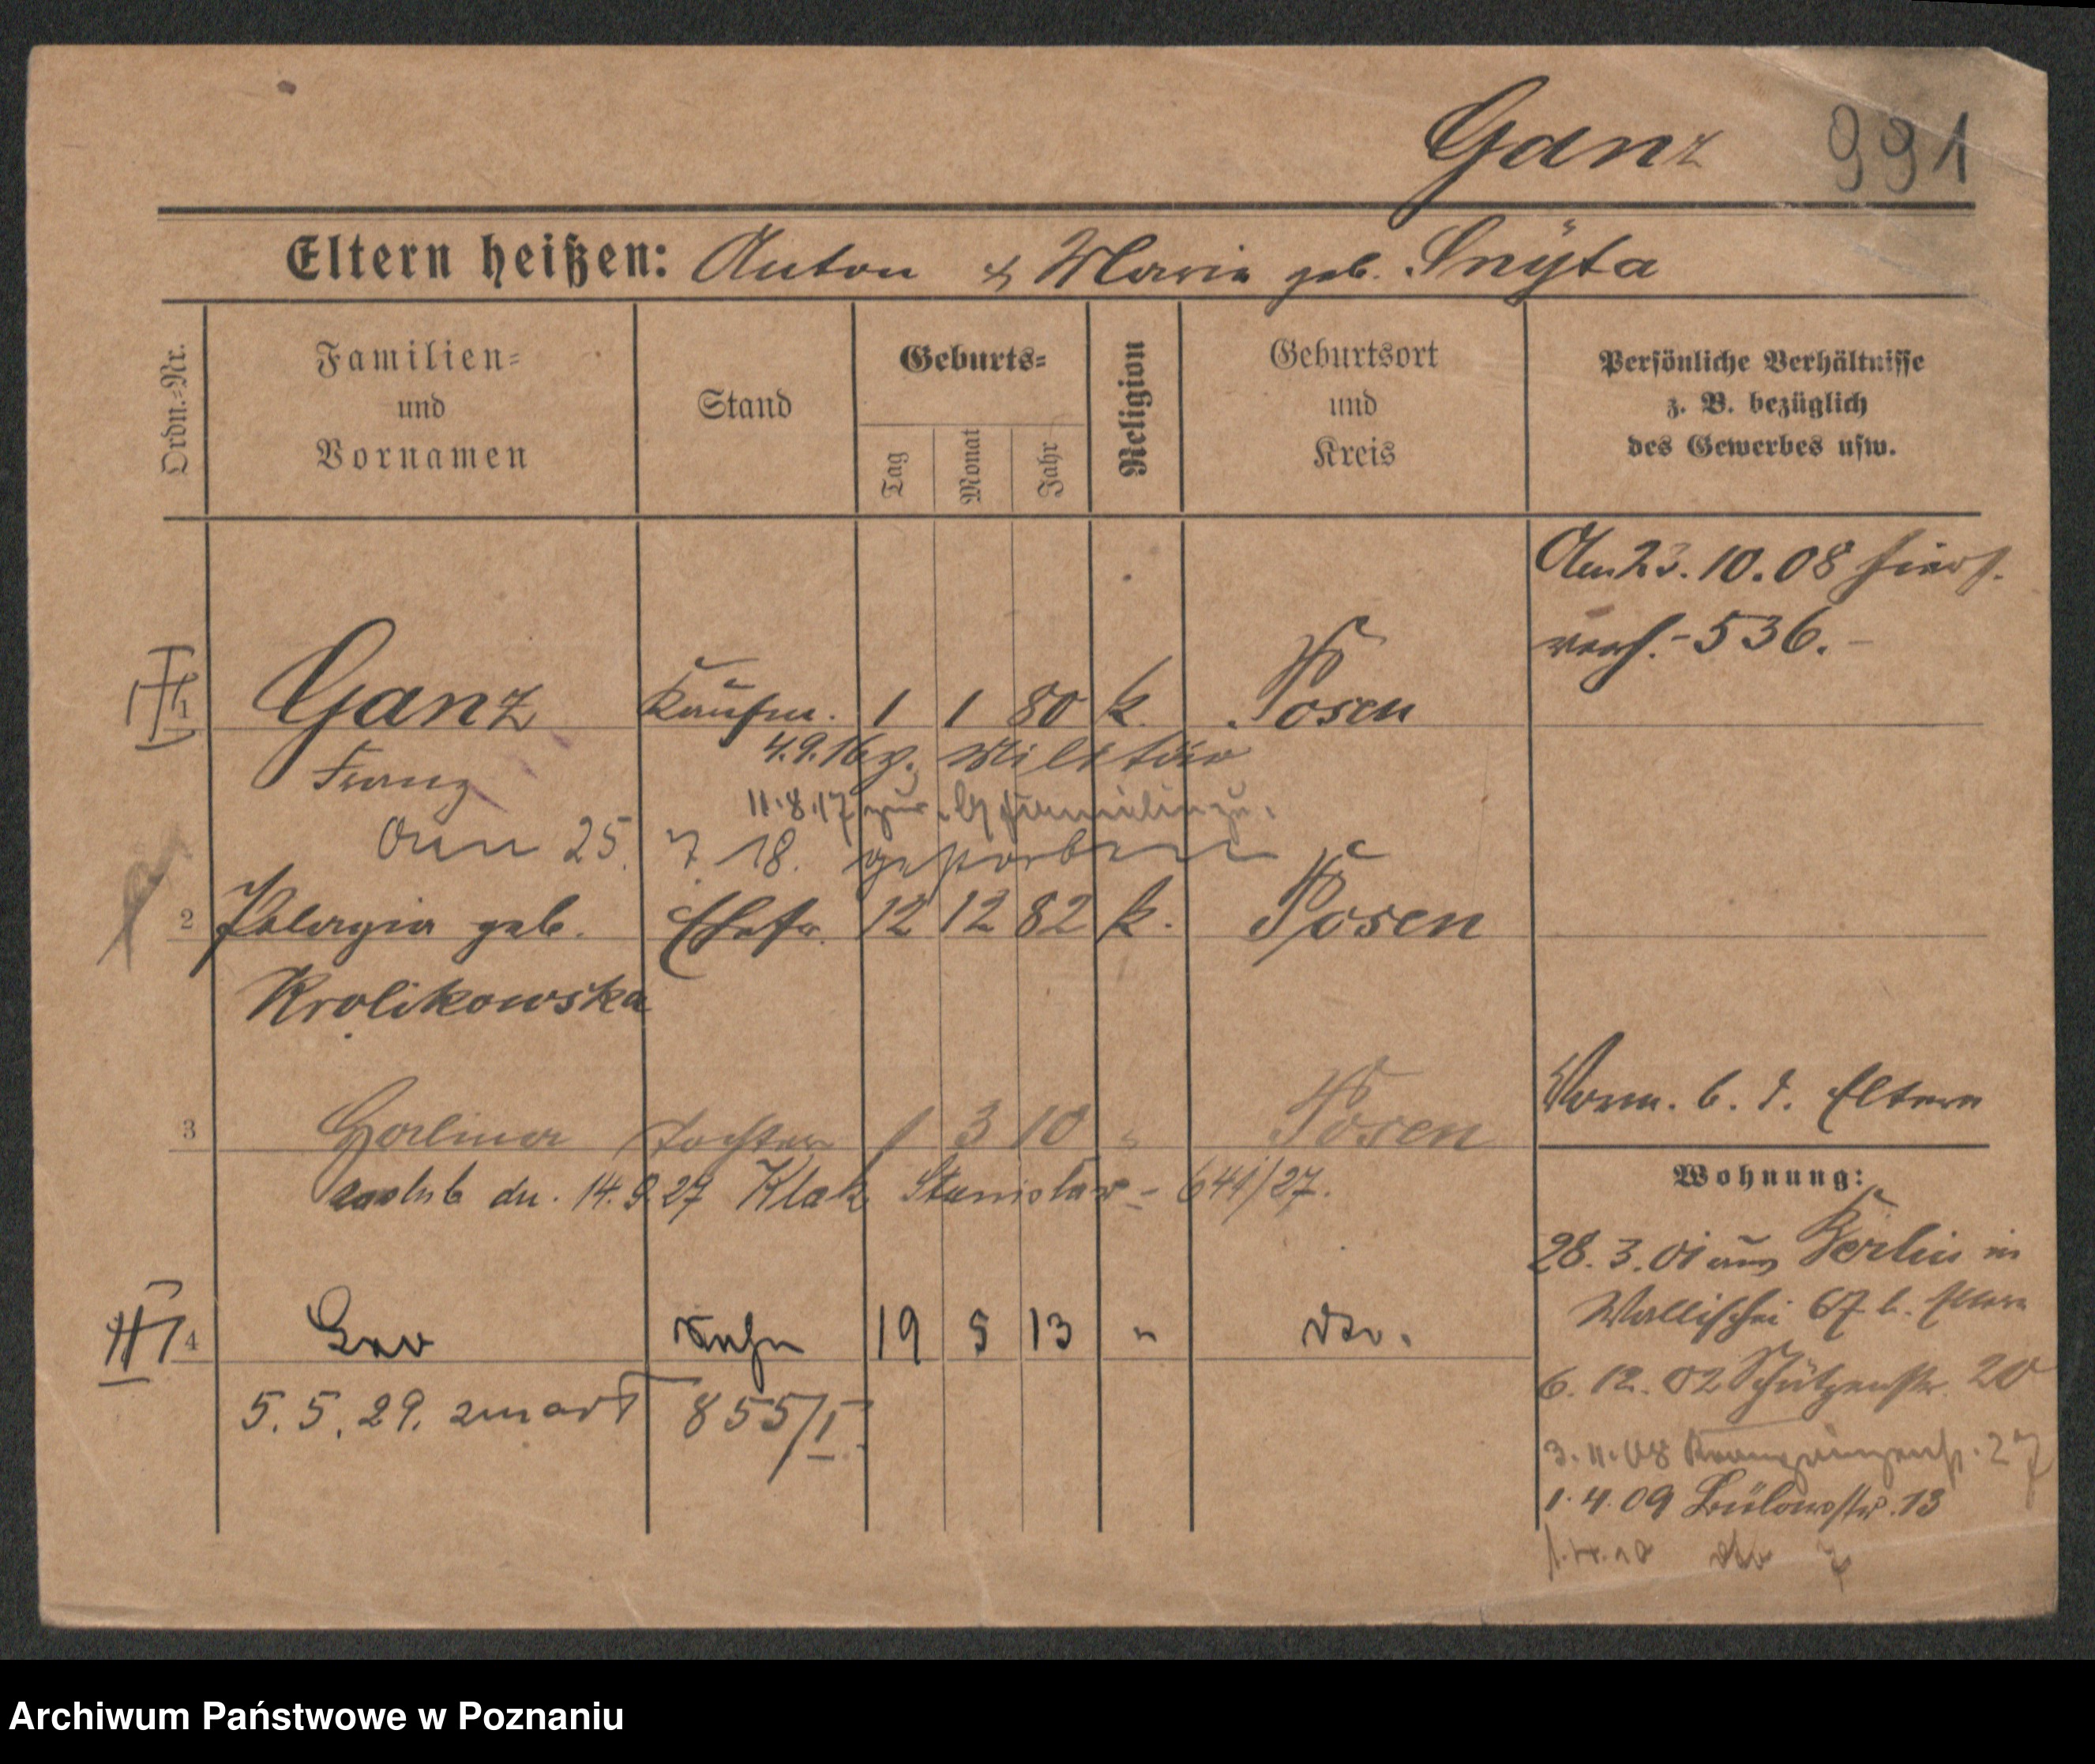 Ganz 991
Eltern heißen: Anton & Maria geb. Snÿta
Ordn.=Nr.
Familien=
und
Vornamen
Stand
Geburts=
Tag
Monat
Jahr
Religion
Geburtsort
und
Kreis
Persönliche Verhältnisse
z. B. bezüglich
des Gewerbes usw.
Am 23.10.08 hiers.
verh. - 536. -
1 Ganz Kaufm. 1 1 80 k. Posen
Franz 4.9.16 z. Militär
11.8.17 zur
Am 25. 7. 18. gestorben
2 Pelagia geb. Ehefr. 12 12 82 k. Posen
Krolikowska
3 Halina Tochter 1 3 10 " Posen
dn. 14.9.27 Klak Stanislaw - 641/27.
4 19 5 13 " dto.
5. 5. 29. zmarł 855/I.
Vorm. b. d. Eltern
Wohnung:
28. 3. 01 aus Berlin in
Wallischei 67 b. Eltern
6. 12. 02 Schützenstr. 20
3. 11. 08 27
1. 4. 09 Bülowstr. 13
dto 7
Archiwum Państwowe w Poznaniu